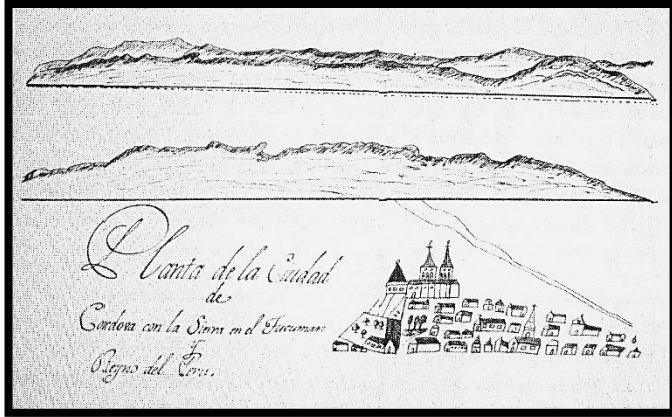 Planta de la Ciudad
de
Cordova con la Sierra en el Tucuman
y
Reyno del Peru.